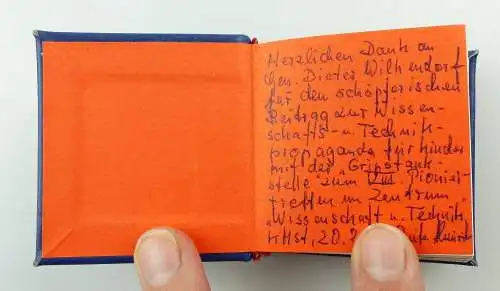 Herzlichen Dank an
Gen. Dieter Wilhendorf
für den schöpferischen
Beitrag zur Wissen-
schafts- u. Technik-
propaganda für Kinder
mit der „Gripstank-
stelle" zum VIII. Pionier-
treffen im Zentrum
„Wissenschaft u. Technik"
KMSt, 20.